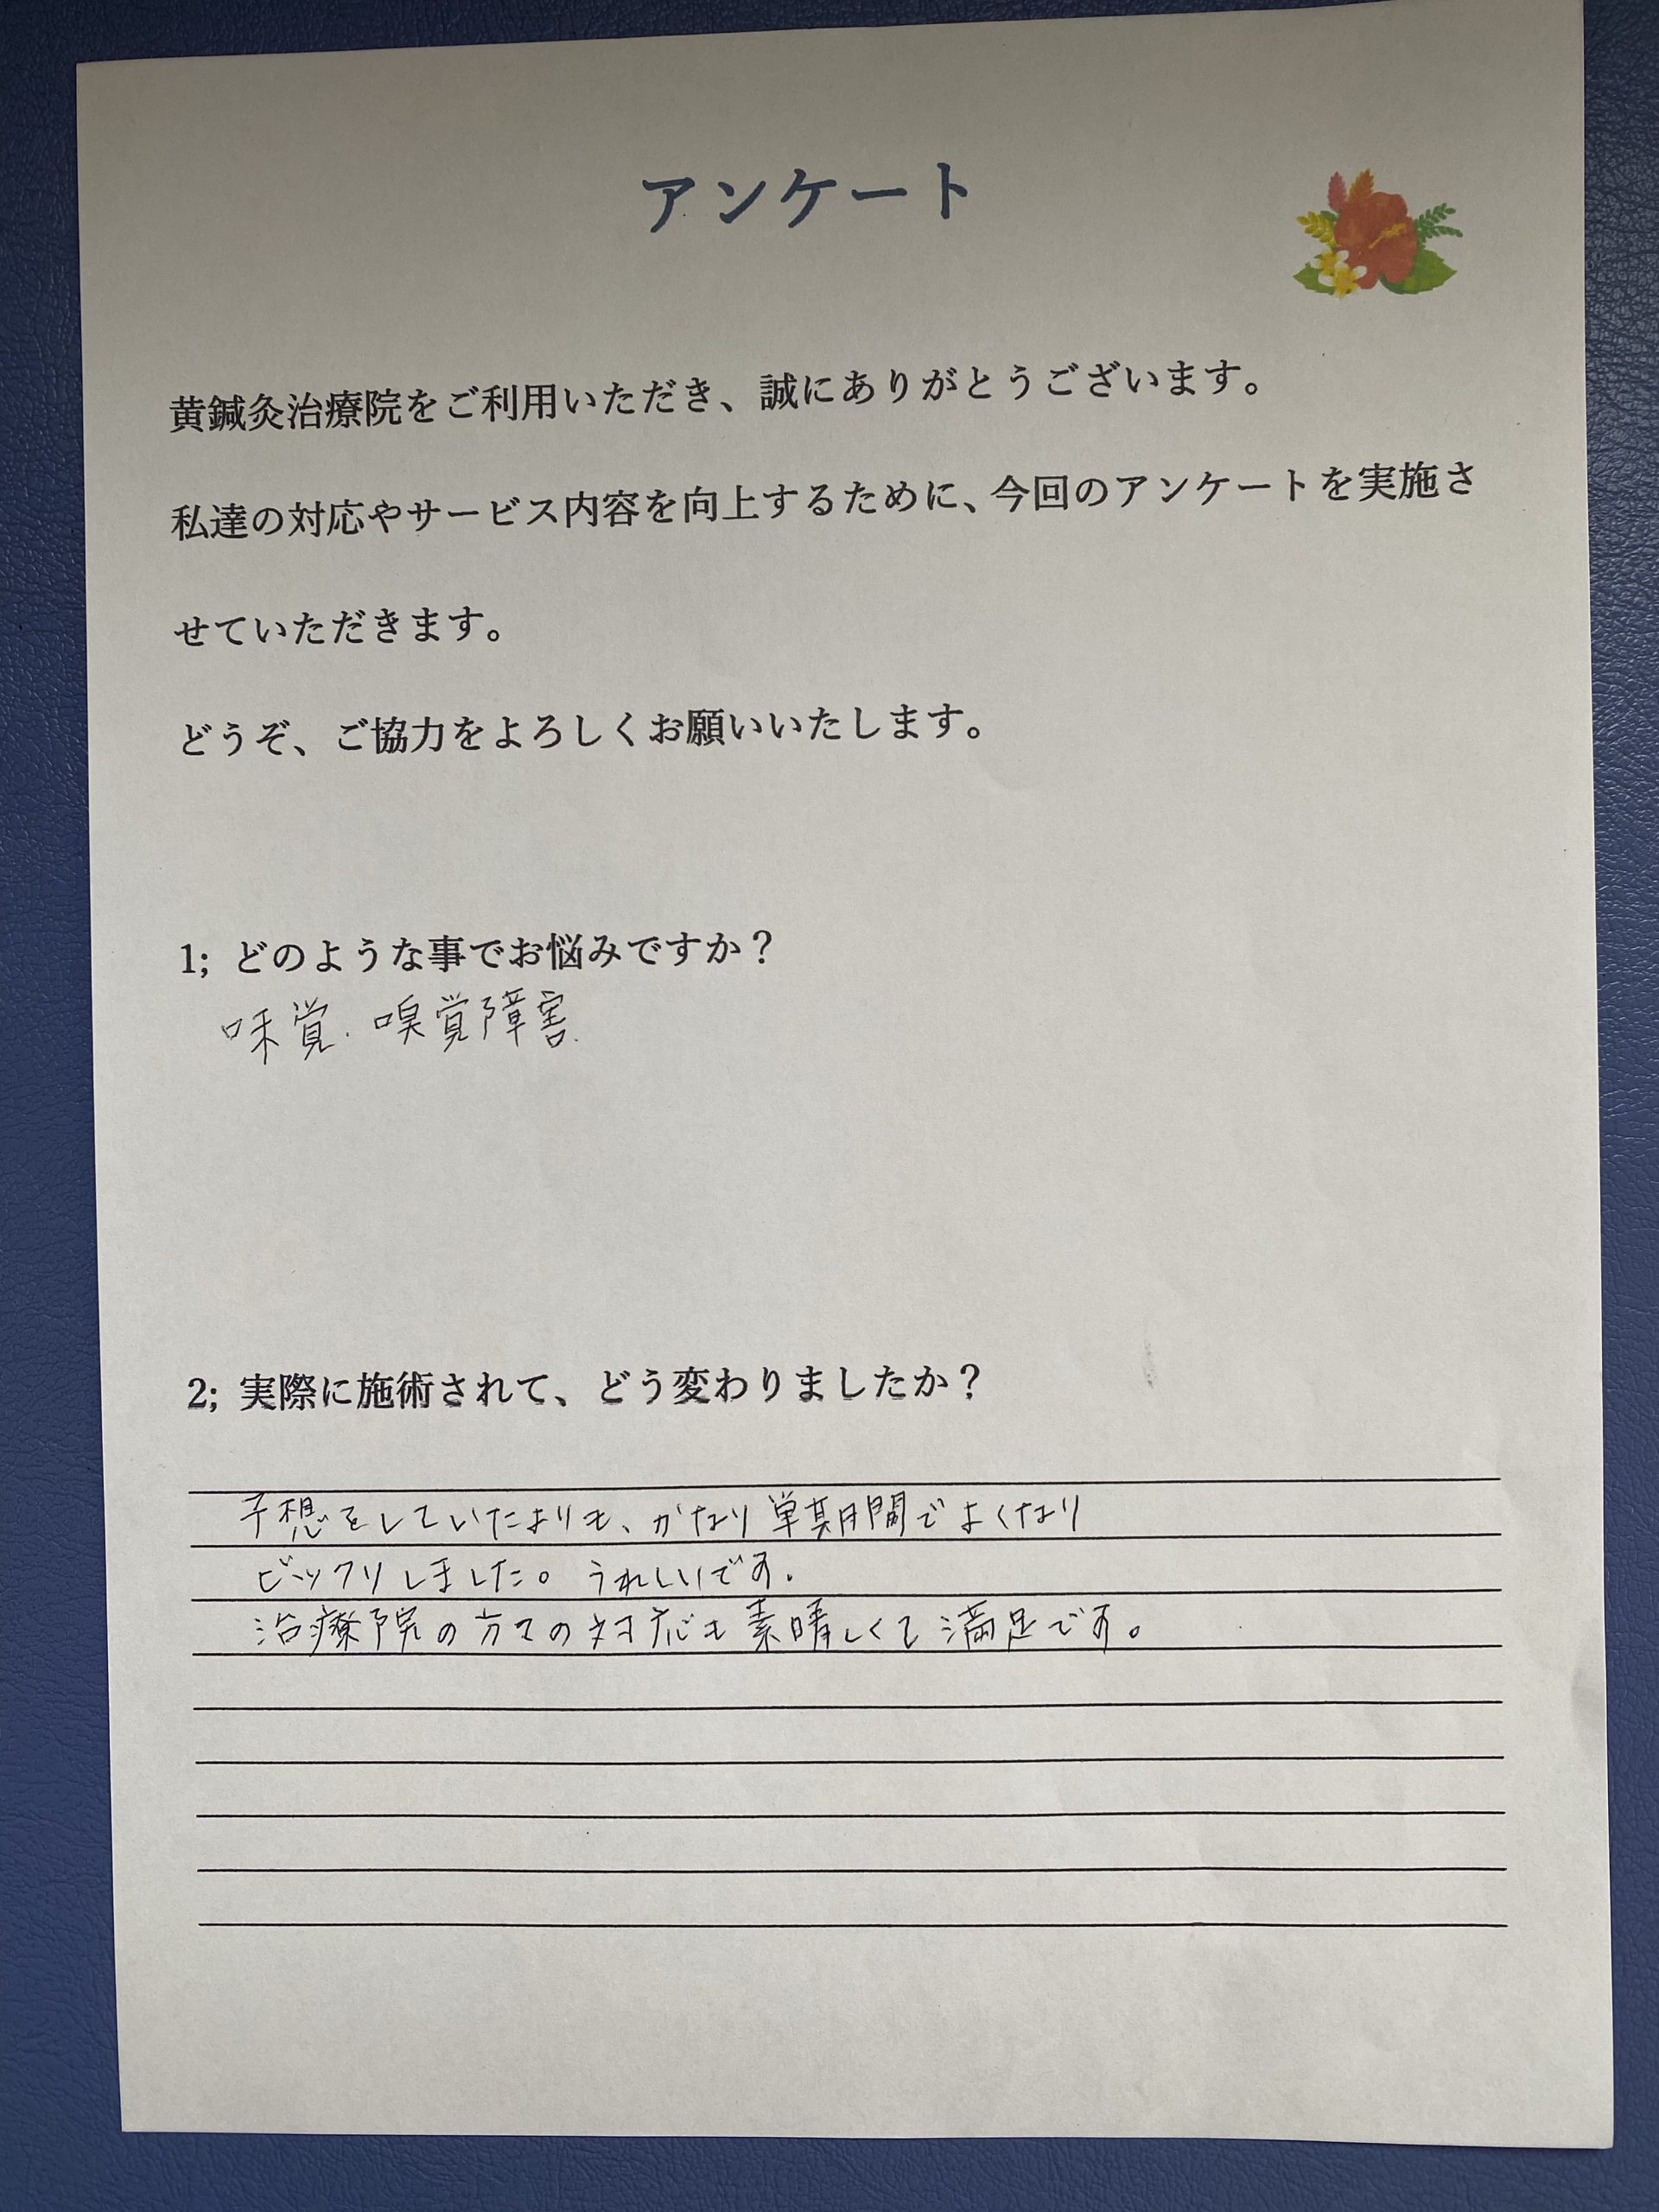 アンケート
黄鍼灸治療院をご利用いただき、誠にありがとうございます。
私達の対応やサービス内容を向上するために、今回のアンケートを実施さ
せていただきます。
どうぞ、ご協力をよろしくお願いいたします。
1; どのような事でお悩みですか？
味覚.嗅覚障害.
2; 実際に施術されて、どう変わりましたか？
予想をしていたよりも、かなり単期間でよくなり
ビックリしました。うれしいです.
治療院の方々の対応も素晴しくて満足です。